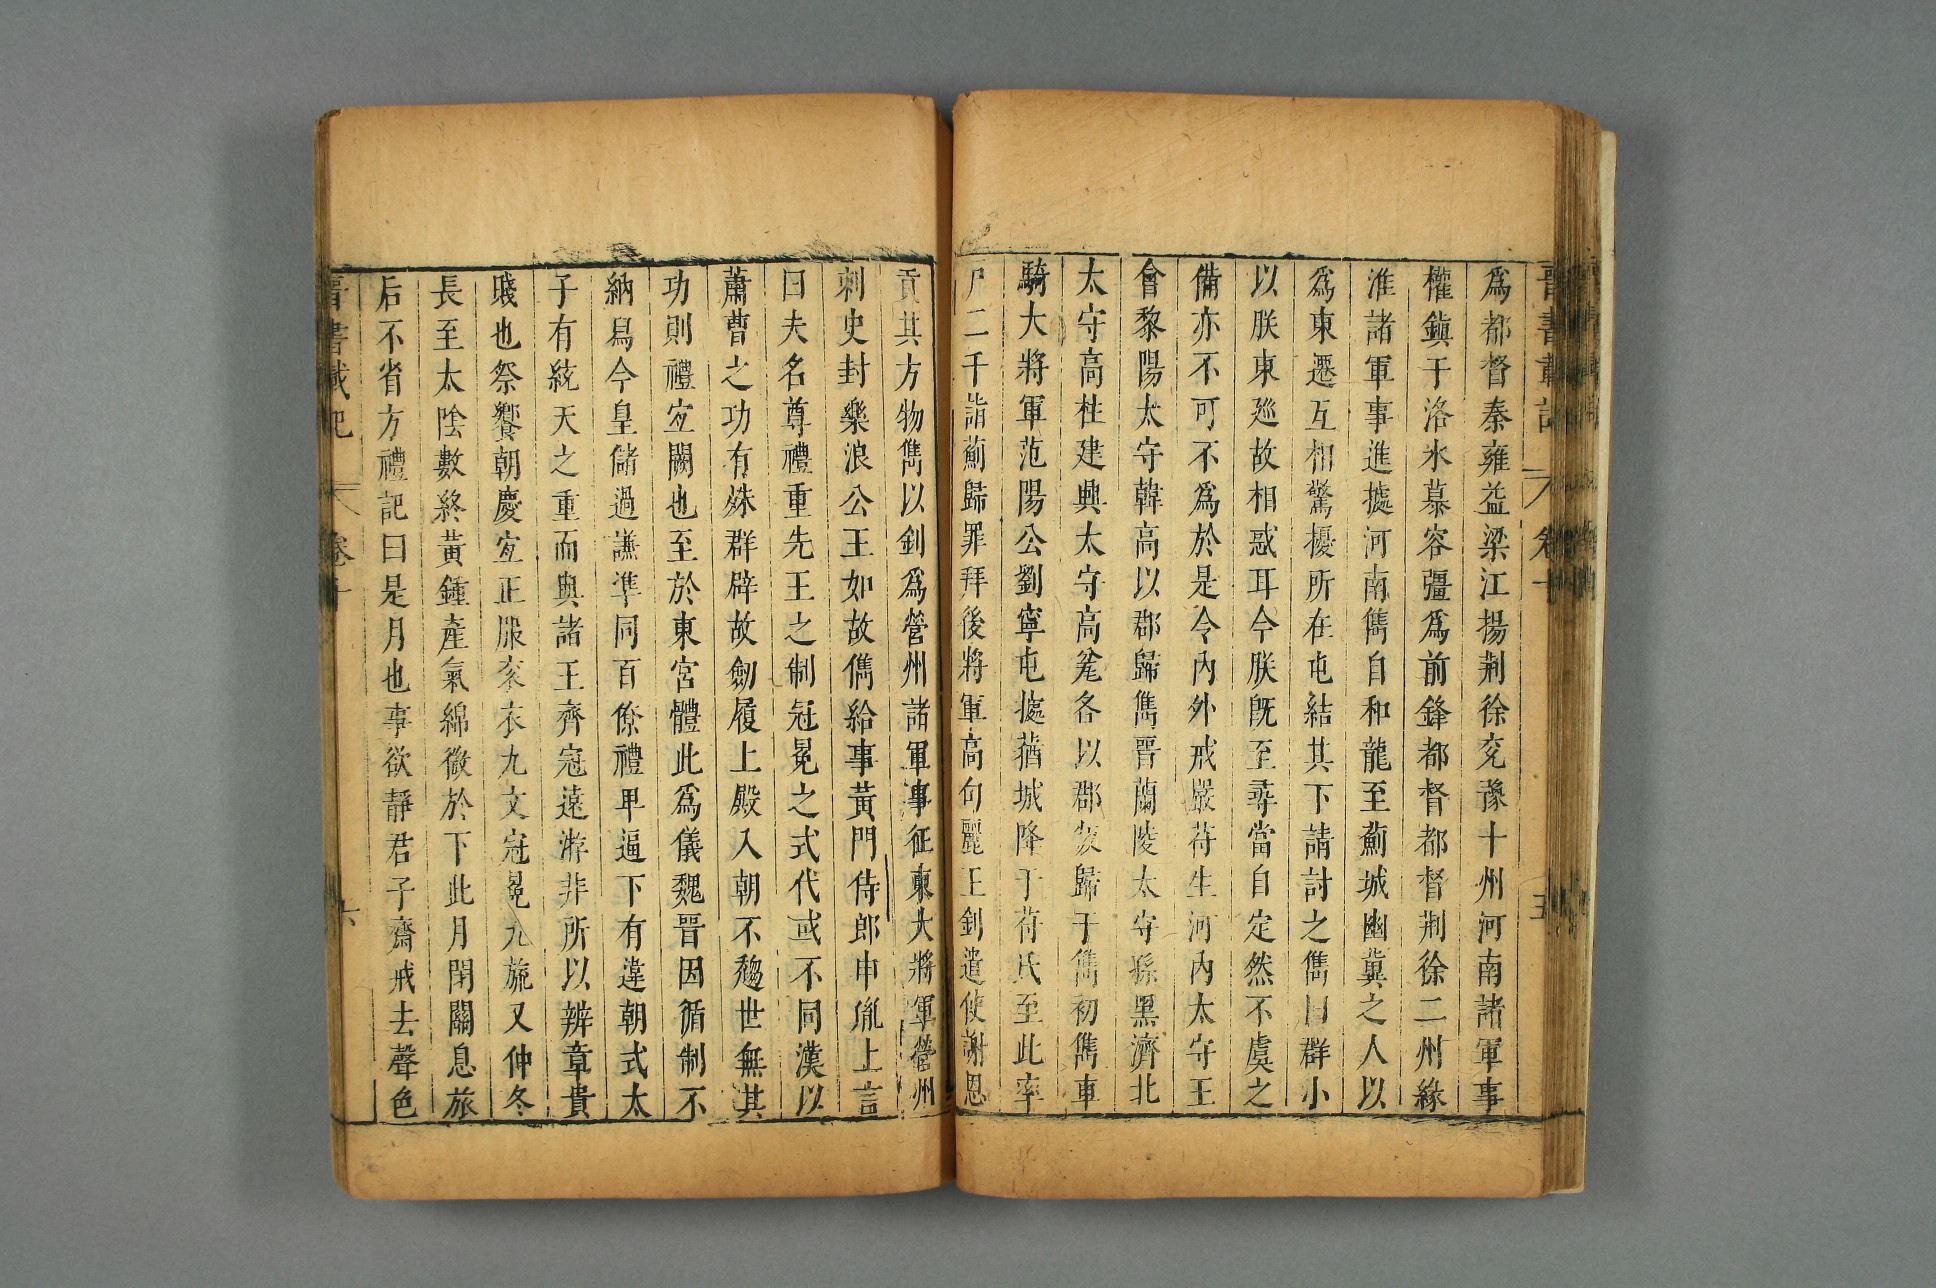 晉書載記 卷十 五
爲都督秦雍益梁江揚荆徐兗豫十州河南諸軍事
權鎮于洛水慕容彊爲前鋒都督都督荆徐二州緣
淮諸軍事進據河南儁自和龍至薊城幽冀之人以
爲東遷互相驚擾所在屯結其下請討之儁曰群小
以朕東廵故相惑耳今朕旣至尋當自定然不虞之
備亦不可不爲於是令內外戒嚴苻生河內太守王
會黎陽太守韓高以郡歸儁晉蘭陵太守孫黑濟北
太守高柱建興太守高瓮各以郡叛歸于儁初儁車
騎大將軍范陽公劉寧屯據蕕城降于苻氏至此率
戶二千詣薊歸罪拜後將軍高句麗王釗遣使謝恩
貢其方物儁以釗爲營州諸軍事征東大將軍營州
刺史封樂浪公王如故儁給事黃門侍郎申胤上言
曰夫名尊禮重先王之制冠冕之式代或不同漢以
蕭曹之功有殊群辟故劒履上殿入朝不趨世無其
功則禮宐闕也至於東宮體此爲儀魏晉因循制不
納舄今皇儲過謙凖同百僚禮卑逼下有違朝式太
子有統天之重而與諸王齊冠遠游非所以辨章貴
賤也祭饗朝慶宐正服衮衣九文冠冕九旒又仲冬
長至太陰數終黃鍾產氣綿微於下此月閉關息旅
后不省方禮記曰是月也事欲靜君子齋戒去聲色
晉書載記 卷十 六